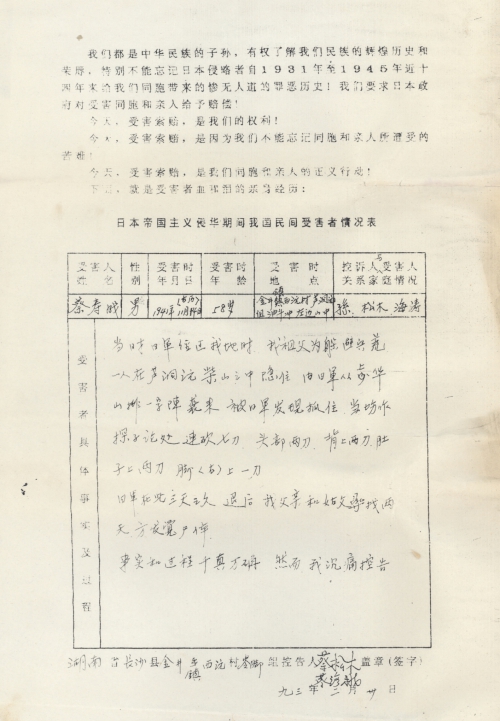 我们都是中华民族的子孙，有权了解我们民族的辉煌历史和
失辱，特别不能忘记日本侵略者自1931年至1945年近十
四年来给我们同胞带来的惨无人道的罪恶历史！我们要求日本政
府对受害同胞和亲人给予赔偿！
今天，受害索赔，是我们的权利！
今天，受害索赔，是因为我们不能忘记同胞和亲人所遭受的
苦难！
今天，受害索赔，是我们同胞和亲人的正义行动！
下面，就是受害者血和泪的亲身经历：
日本帝国主义侵华期间我国民间受害者情况表
受害人姓名 性别 受害时年月日 受害时年龄 受害时地点 控诉人与受害人关系家庭情况
蔡寿 男 1941年(古历)11月14日 58岁 金井镇西沆村 山中 孙 松木 海涛
受害者具体事实及过程
当时日军位近我地时 我祖父为躲避兵荒
一人在芦洞沆柴山之中隐住 由日军从
山 一字阵袭来 被日军发现抓住 当场作
探子论处 连砍七刀 头部两刀 背上两刀 肚
子上两刀 脚(右)上一刀
日军在此三天三夜 退后 我父亲和姑父寻找两
天 方 尸体
事实和过程千真万确 然而我沉痛控告
湖南省长沙县金井乡镇西沆村 脚组控告人 蔡松木 蔡海涛 盖章(签字)
九三年三月 日